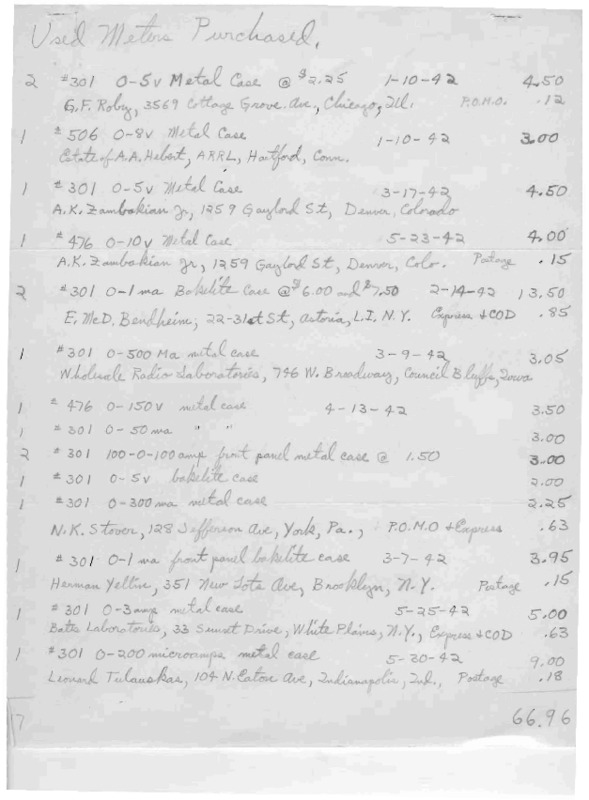 Used Meters Purchased.
2 #301 0-5v Metal Case @ $2.25 1-10-42 4.50
G.F. Roby, 3569 Cottage Grove Ave, Chicago, Ill. P.O.M.O. .12
1 #506 0-8v Metal Case 1-10-42 3.00
Estate of A.A. Hebert, ARRL, Hartford, Conn.
1 #301 0-5v Metal Case 3-17-42 4.50
A.K. Zambakian Jr, 1259 Gaylord St, Denver, Colorado
1 #476 0-10v Metal Case 5-23-42 4.00
A.K. Zambakian Jr, 1259 Gaylord St, Denver, Colo. Postage .15
2 #301 0-1ma Bakelite Case @ $6.00 and $7.50 2-14-42 13.50
E. McD. Bendheim, 22-31st St, Astoria, L.I. N.Y. Express & COD .85
1 #301 0-500 Ma metal case 3-9-42 3.05
Wholesale Radio Laboratories, 746 W. Broadway, Council Bluffs, Iowa
1 #476 0-150v metal case 4-13-42 3.50
1 #301 0-50ma " " 3.00
2 #301 100-0-100amp front panel metal case @ 1.50 3.00
1 #301 0-5v bakelite case 2.00
1 #301 0-300ma metal case 2.25
N.K. Stover, 128 Jefferson Ave, York, Pa., P.O.M.O & Express .63
1 #301 0-1ma front panel bakelite case 3-7-42 3.95
Herman Yellin, 351 New Lots Ave, Brooklyn, N.Y. Postage .15
1 #301 0-3amp metal case 5-25-42 5.00
Batts Laboratories, 33 Sunset Drive, White Plains, N.Y., Express & COD .63
1 #301 0-200 microamps metal case 5-30-42 9.00
Leonard Tulauskas, 104 N. Eaton Ave, Indianapolis, Ind., Postage .18
17 66.96